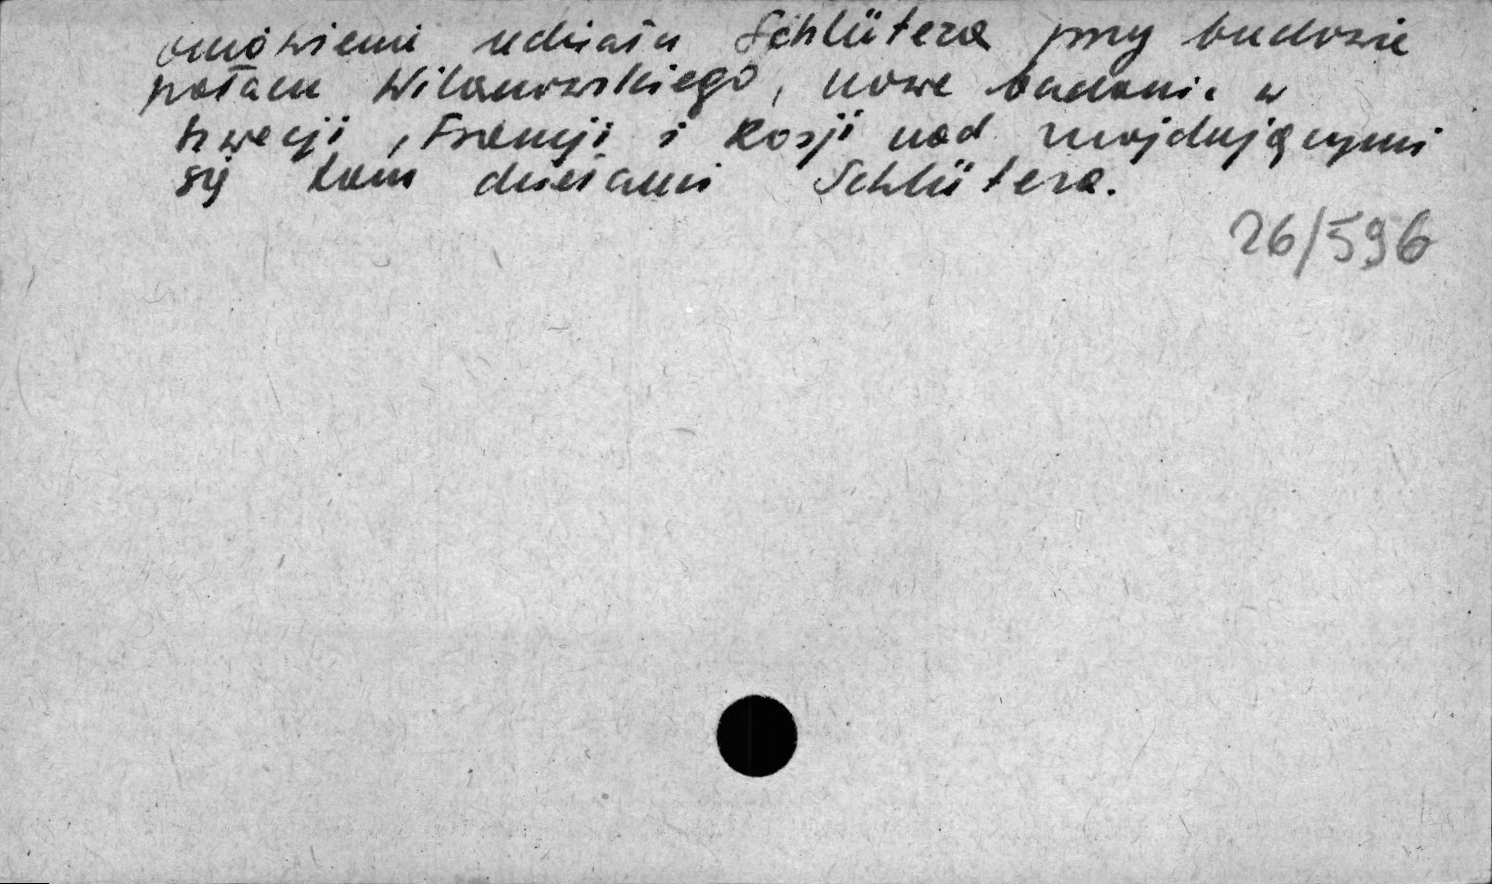 omówienie udziału Schlütera przy budowie
pałacu Wilanowskiego, nowe badania w
Szwecji, Francji i Rosji nad znajdującymi
się tam dziełami Schlütera.
26/596